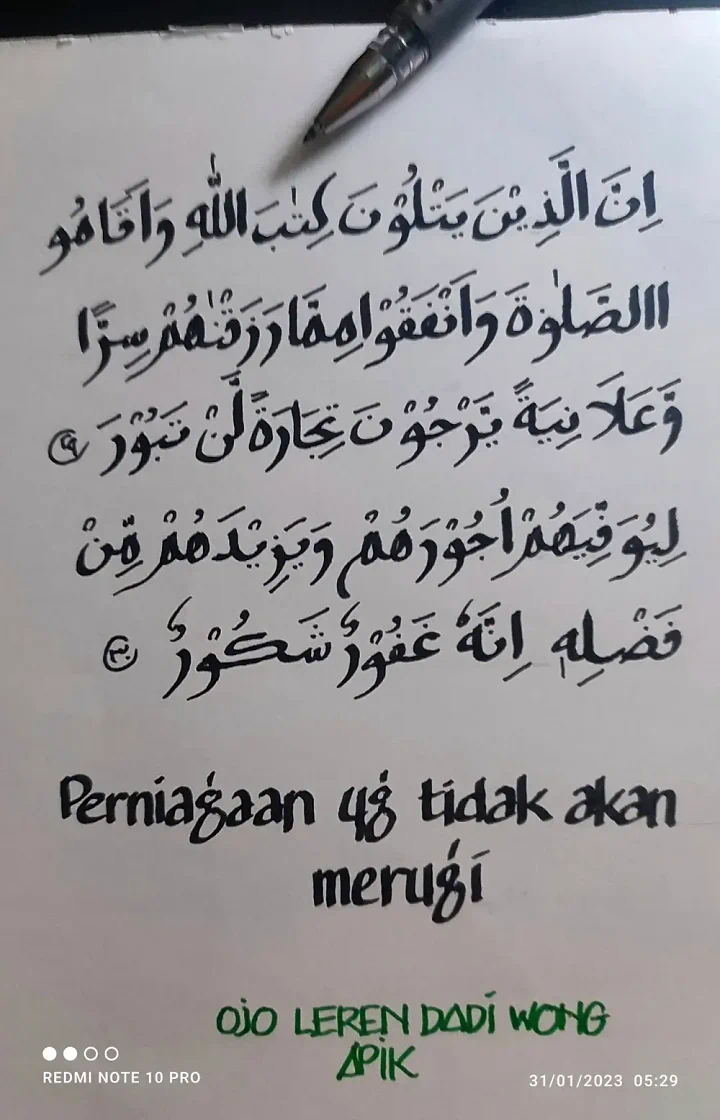 اِنَّ الَّذِيْنَ يَتْلُوْنَ كِتٰبَ اللّٰهِ وَاَقَامُو
االصَّلٰوةَ وَاَنْفَقُوْا مِمَّا رَزَقْنٰهُمْ سِرًّا
وَّعَلَا نِيَةً يَّرْجُوْنَ تِجَارَةً لَّنْ تَبُوْرَ ٢٩
لِيُوَفِّيَهُمْ اُجُوْرَهُمْ وَيَزِيْدَهُمْ مِّنْ
فَضْلِهٖ اِنَّهٗ غَفُوْرٌ شَكُوْرٌ ٣٠
Perniagaan yg tidak akan
merugi
OJO LEREN DADI WONG
APIK
REDMI NOTE 10 PRO
31/01/2023 05:29